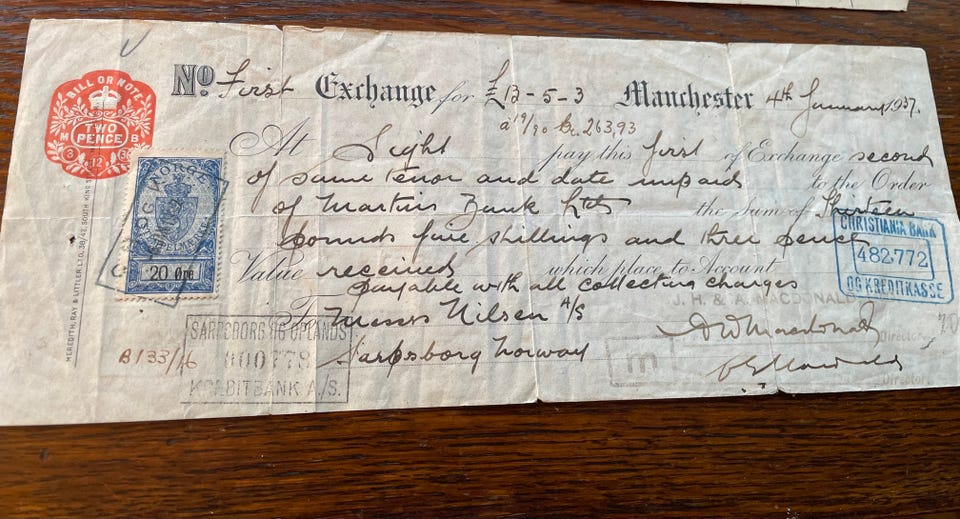 No. First Exchange for £13-5-3 Manchester 4th January 1937.
a 19/90 Kr. 263,93
At Sight pay this first of Exchange second
of same tenor and date unpaid to the Order
of Martins Bank Ltd the Sum of Thirteen
pounds five shillings and three pence
Value received which place to Account
payable with all collecting charges
J. H. & A. MACDONALD
To Messrs Nilsen A/S
Sarpsborg Norway
Director
Director
B133/46
BILL OR NOTE
TWO PENCE
M B
3 12 36
MEREDITH, RAY & LITTLER LTD., 38/42, SOUTH KING ST
NORGE
20 Øre
CHRISTIANIA BANK
482·772
OG KREDITKASSE
SARPSBORG OG OPLANDS
000778
KREDITBANK A/S.
m